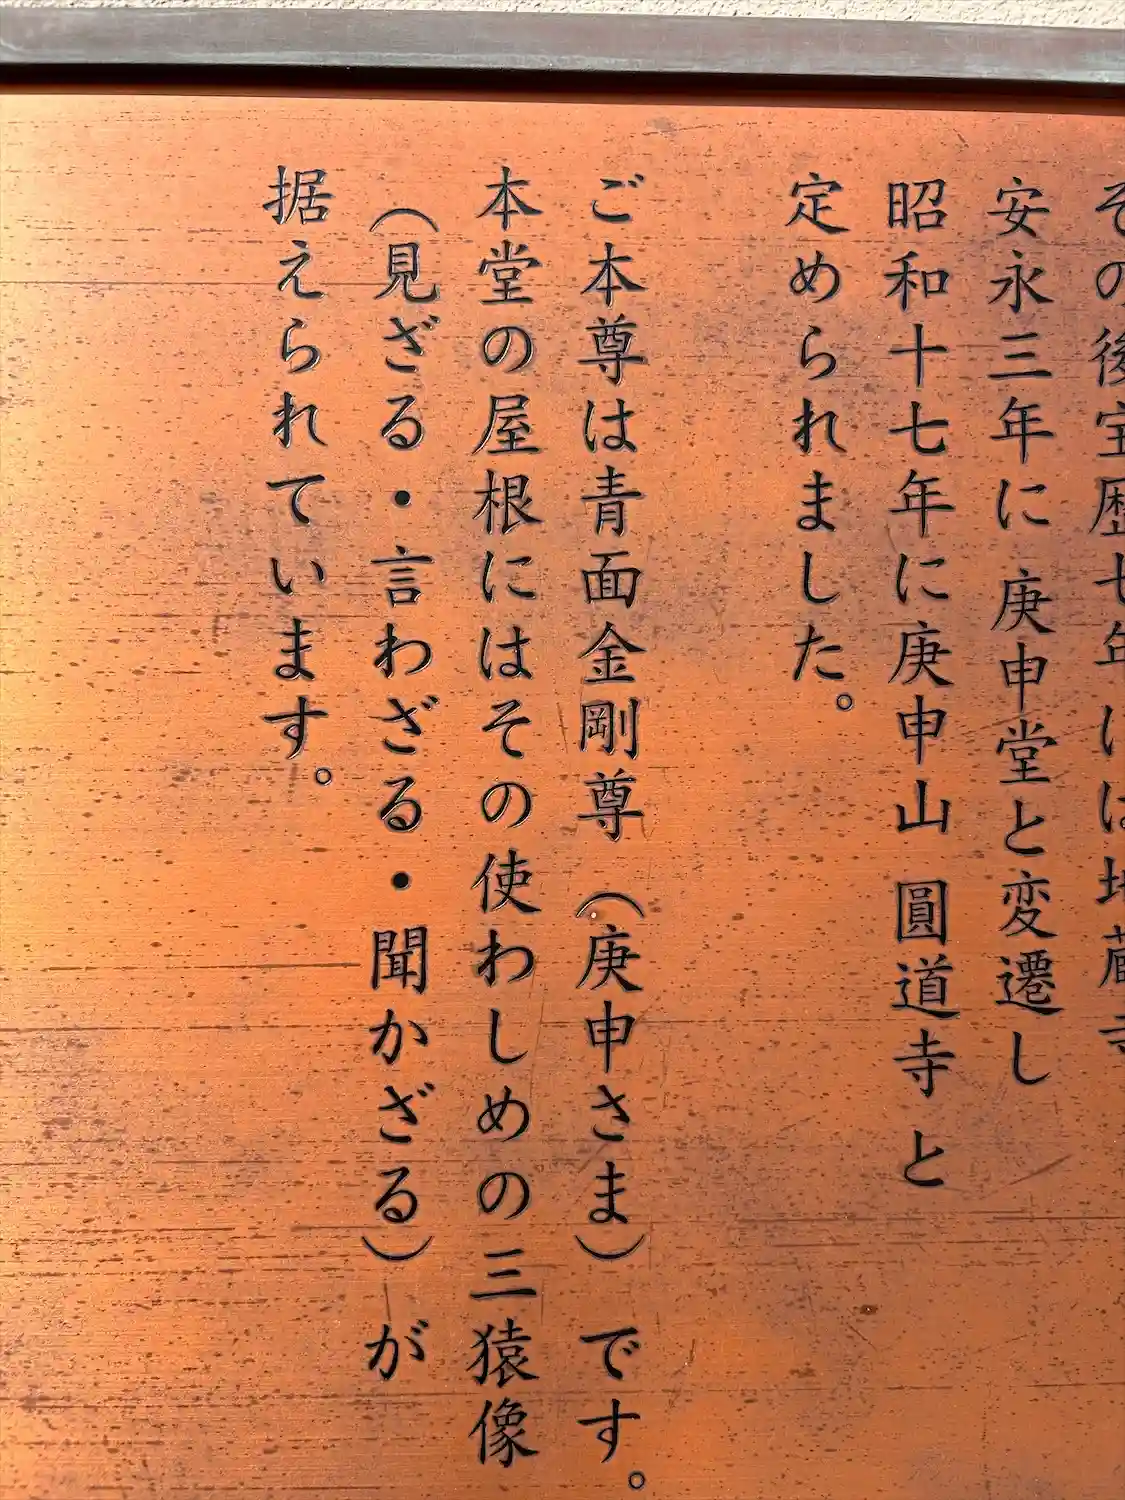 その後宝歴七年には地蔵寺
安永三年に 庚申堂と変遷し
昭和十七年に庚申山 圓道寺と
定められました。
ご本尊は青面金剛尊（庚申さま）です。
本堂の屋根にはその使わしめの三猿像
（見ざる・言わざる・聞かざる）が
据えられています。